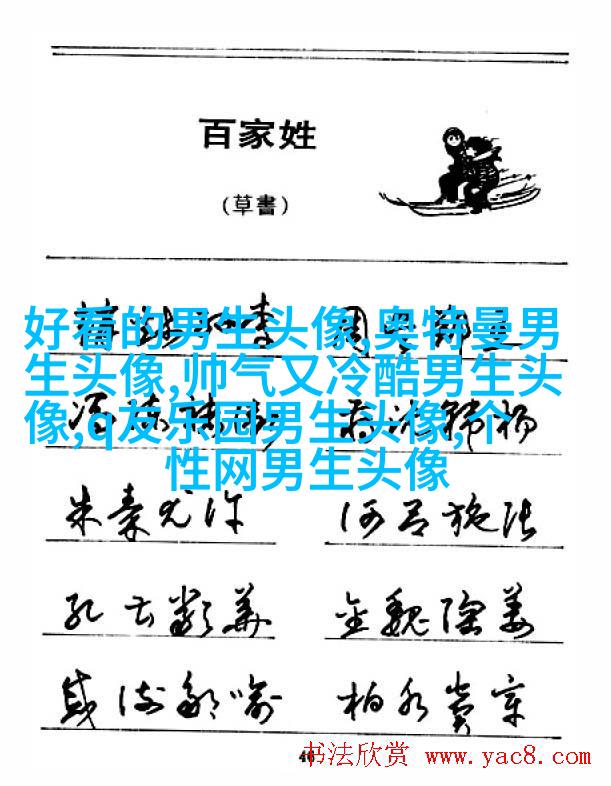 百家姓
(草書)
好看的男生头像,奥特曼男
生头像,帅气又冷酷男生头
像,q友乐园男生头像,个
性网男生头像
朱秦尤许 何吕施张
孔曹严华 金魏陶姜
戚谢邹喻 柏水窦章
46
书法欣赏 www.yac8.com